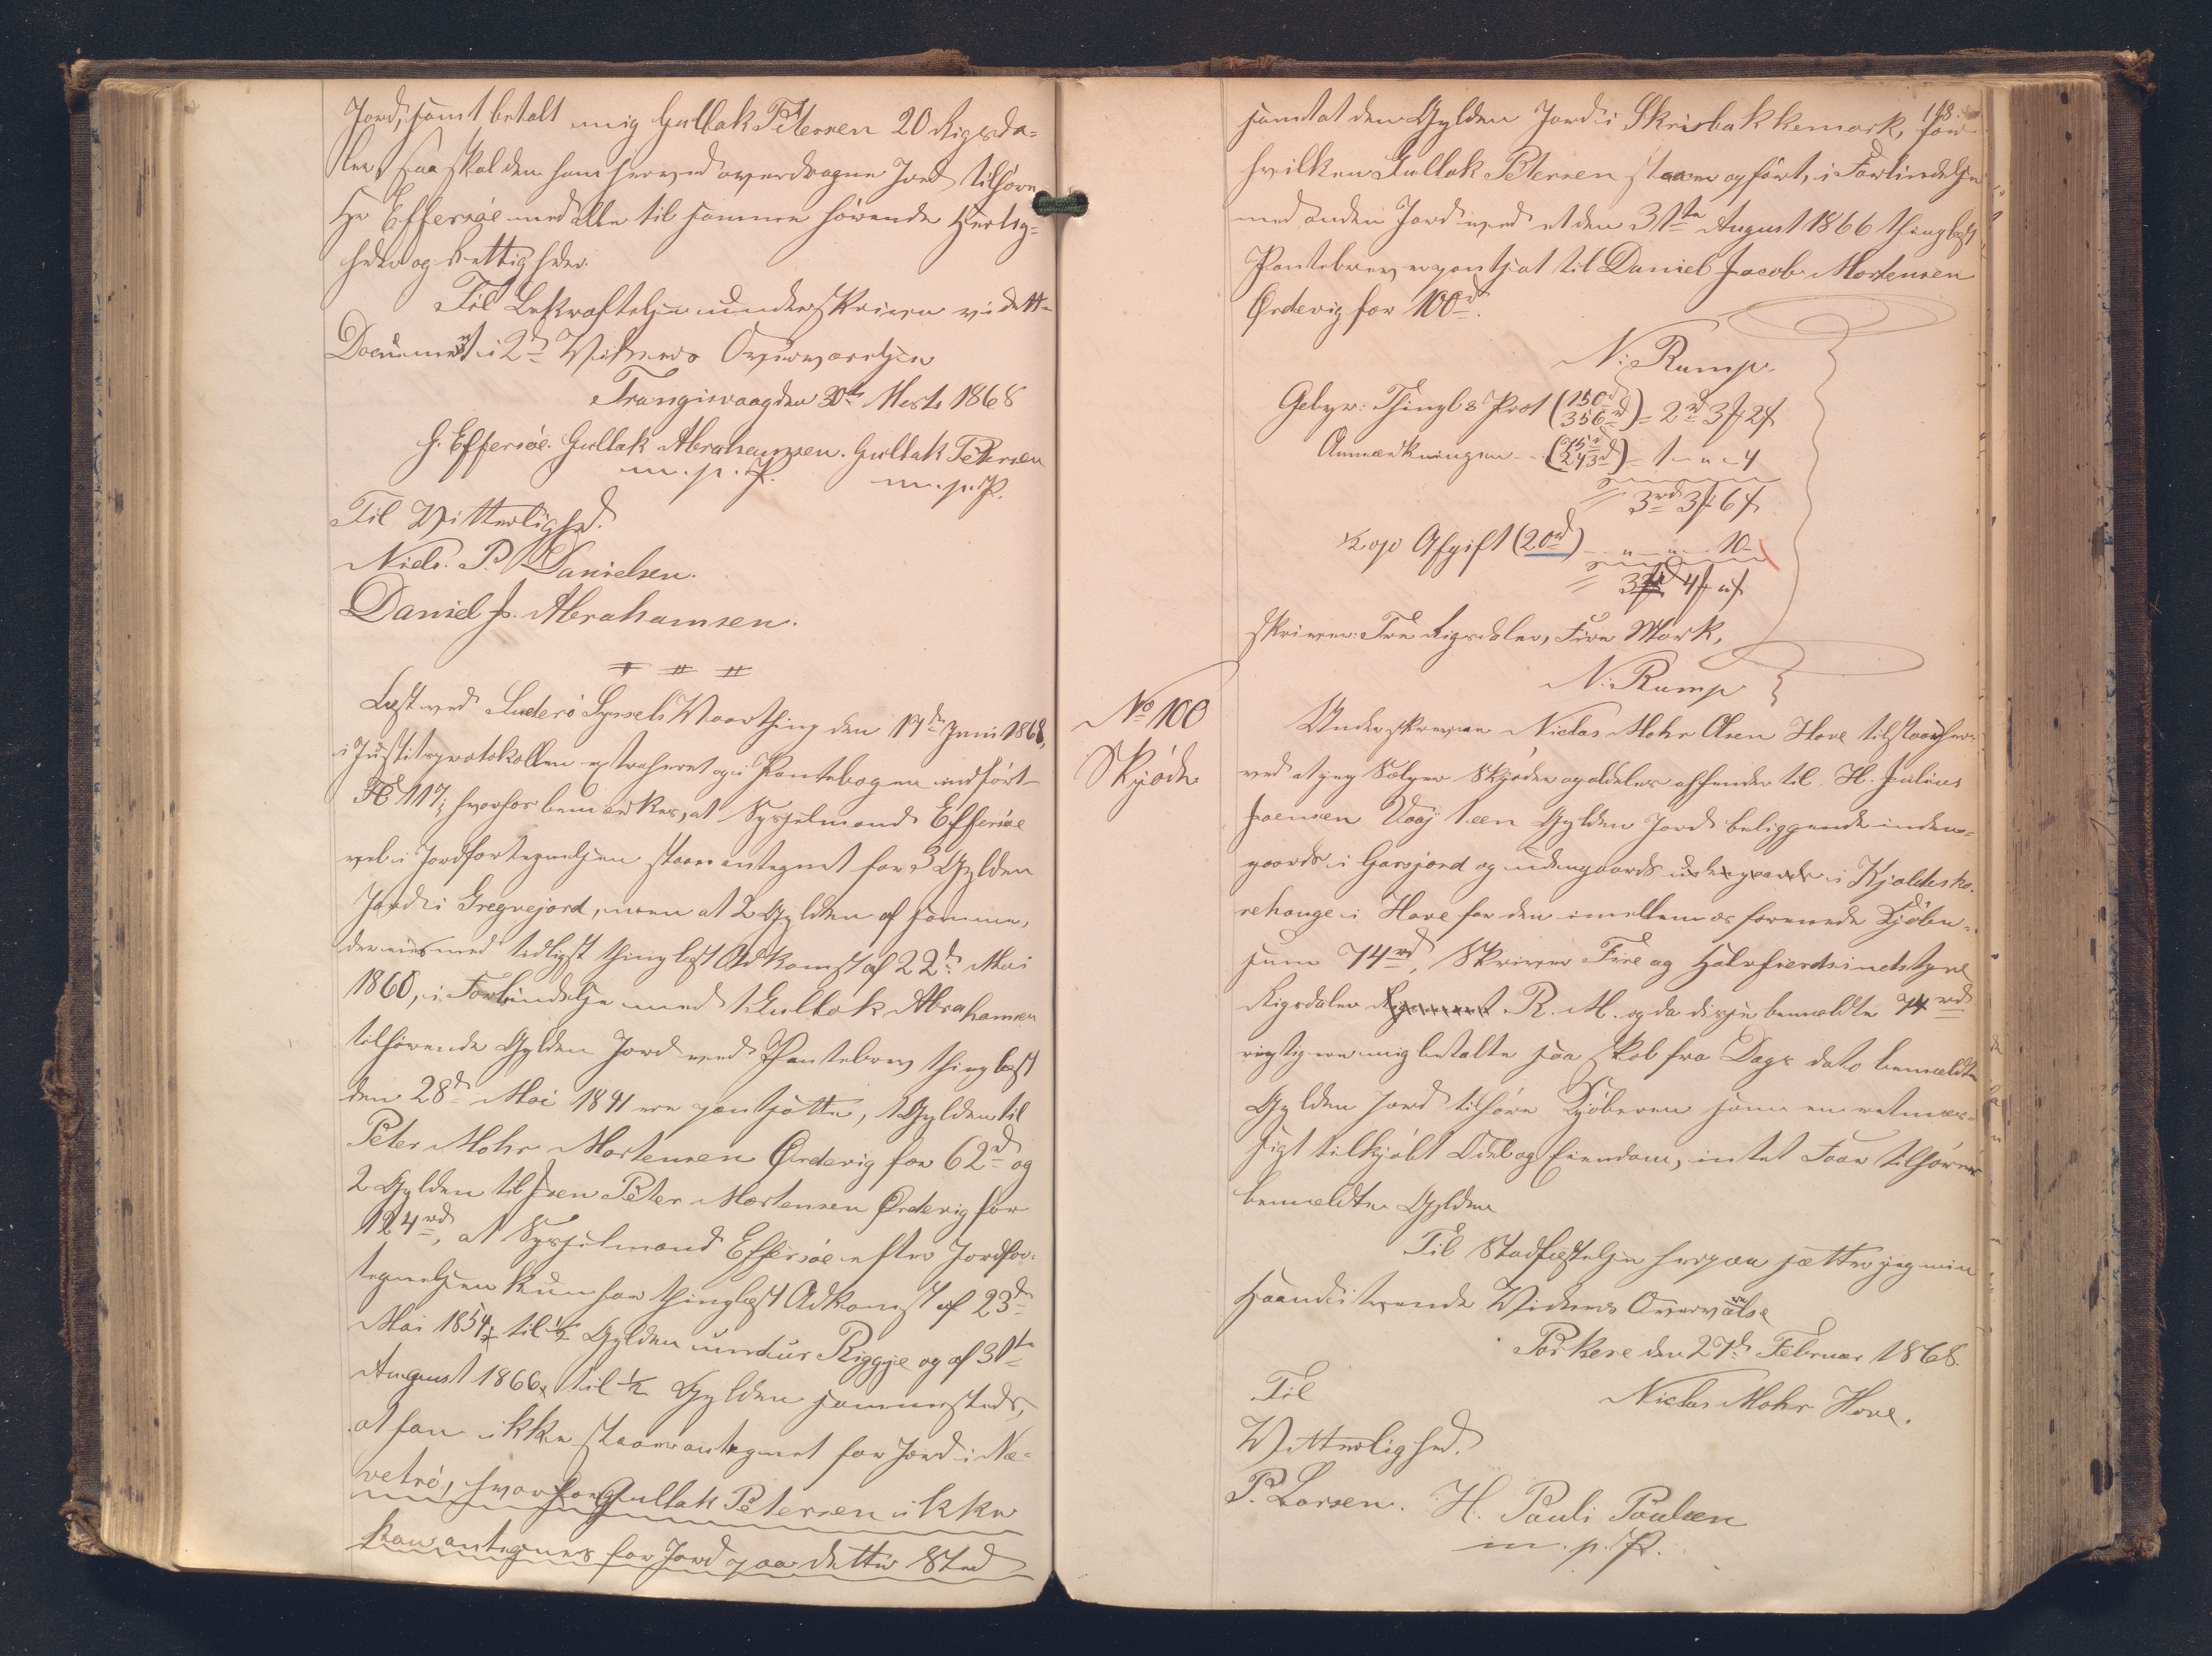 Jord, samt betalt mig Gullak Petersen 20 Rigsda-
ler, saa skal den ham herved overdragne Jord tilhøre
Hr Effersøe med alle til samme hørende Herlig-
heder og Rettigheder.
Til Bekræftelse underskriver vi dette
Document i 2de Vidners Overværelse
Trangisvaag den 30te Marts 1868
G. Effersøe. Gullak Abrahamsen. Gullak Petersen
m. p. P. m. p. P.
Til Vitterlighed.
Niels. P. Danielsen.
Daniel J. Abrahamsen.
Læst ved Suderø Syssels Vaarthing den 17de Juni 1868,
i Justitsprotokollen extraheret og i Pantebogen indført
Fol 117; hvorhos bemærkes, at Sysselmand Effersøe
vel i Jordfortegnelsen staar antegnet for 3 Gylden
Jord i Gregvejord, men at 2 Gylden af samme,
der eies med tidligst thinglæst Adkomst af 22de Mai
1860, i Forbindelse med 1 Gullak Abrahamsen
tilhørende Gylden Jord ved Pantebrev thinglæst
den 28de Mai 1841 ere pantsatte, 1 Gylden til
Peter Mohr Mortensen Ørderig for 62rd og
2 Gylden til Joen Peter Mortensen Ørderig for
124rd, at Sysselmand Effersøe efter Jordfor-
tegnelsen kun har thinglæst Adkomst af 23de
Mai 1854 til ½ Gylden undur Riggje og af 31te
August 1866 til ½ Gylden sammesteds,
at han ikke staar antegnet for Jord i Næ-
vetrø, hvorfor Gullak Petersen ikke
kan antegnes for Jord paa dette Sted
118.
samt at den Gylden Jord i Skrisbakkemark, for
hvilken Gullak Petersen staaer opført, i Forbindelse
med anden Jord ved et den 31te August 1866 thinglæst
Pantebrev er pantsat til Daniel Jacob Mortensen
Ørderig for 100rd.
N. Rump.
Gebyr: Thingl & Prot (150rd 356rd) = 2rd 3 2
Anmærkningen (75rd 243rd) = 1 - " - 4
= 3rd 3 6
½ op Afgift (20rd) - " - " - 10 -
= 3rd 4 "
skriver: Tre Rigsdaler, Fire Mark,
N. Rump
No 100
Skjøde
Underskreven Niclas Mohr Olsen Hove tilstaar her-
ved at jeg Sælger Skjøder og aldeles afhender til H. Julius
Joensen Vaaj 1 een Gylden Jord beliggende inden-
gaards i Garsjord og udengaards udengaards i Kjaldesho-
rehauge i Hove for den imellem os forenede Kjøbe-
sum 74rd, Skriver Fire og Halvfierdsindstyve
Rigsdaler R. M. og da disse bemældte 74rd
rigtig ere mig betalte saa skal fra Dags dato bemældte
Gylden Jord tilhøre Kjøberen som en retmæs-
sigt tilkjøbt Odel og Eiendom, intet Faar tilhører
bemældte Gylden
Til Stadfæstelse herpaa sætter jeg min
Haand i tvende Vidners Overværelse
Porkere den 27de Februar 1868.
Til Niclas Mohr Hove.
Vitterlighed.
P. Larsen. H. Pauli Poulsen
m. p. P.